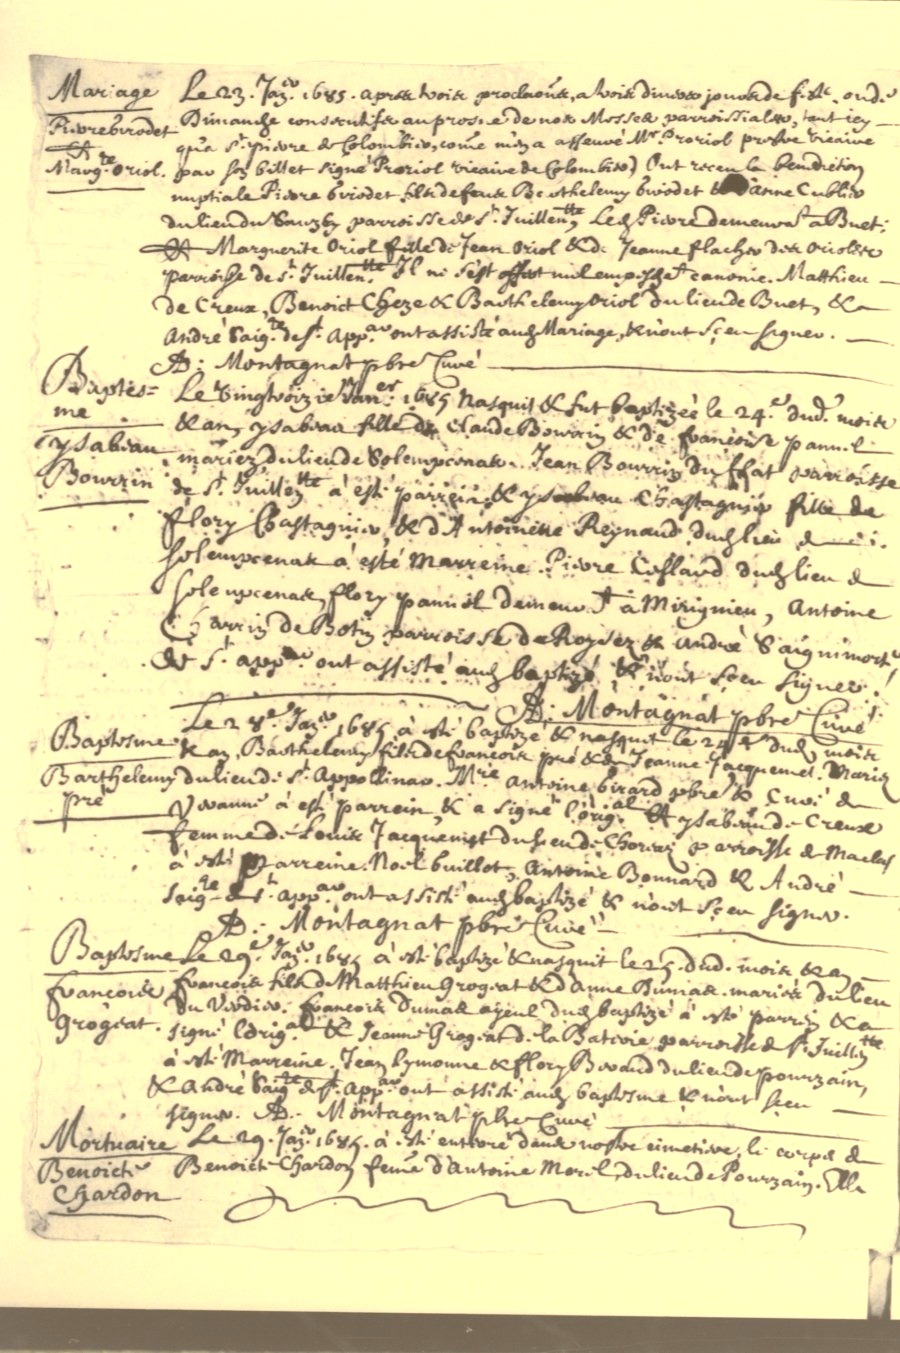 Mariage
Pierre Griodet
&
Marg.te Oriol.
Le 23. Janv. 1685. apres trois proclaõns, a trois divers jours de feste, ou de
Dimanche consecutifs au prosne de nos Messes parroissiales, tant icy
qu'a st. pierre de Colombier, come m'en a asseuré Mre Proriol prestre vicaire
par son billet signé Proriol vicaire de Colombier) Ont receu la benediction
nuptiale Pierre Griodet fils de feus Berthelemy Griodet & Anne Cublier
du lieu du Sauzey parroisse de st. Juillen tte, Led. Pierre demeurat a Buet;
& Marguerite Oriol fille de Jean Oriol & de Jeanne flacher dits Oriolere
parroisse de st. Juillen tte. Il ne s'est offert nul empesche.t canonic. Matthieu
de Creux, Benoict Cheze & Barthelemy Oriol du lieu de Buet, &
André Saig.te de st. App.ar ont assisté aud. Mariage, & n'ont sçeu signer.
A: Montagnat pbre Curé
Baptes=
me
ysabeau
Bourrin
Le Vingtroizie Janer. 1685 Nasquit & fut baptizée le 24.e dud. mois
& an, ysabeau fille de Claude Bourrin & de françoise pannel
mariez, du lieu de Solempcenas. Jean Bourrin du ffat parroisse
de st. Juillen tte à esté parrein, & ysabeau Chastagnier fille de
flory Chastagnier, & d'Antoinette Reynaud dud. lieu de
Solempcenas à esté Marreine. Pierre Coffard dud. lieu de
Solempcenas, flory pannel demeurt à Mirignieu, Antoine
Charrin de Botin parroisse de Roysez & André Saignimorte
de st. app.ar ont assisté aud. baptezé & n'ont sçeu signer.
A: Montagnat pbre Curé
Baptesme
Barthelemy
pré
Le 28.e Janv. 1685 à esté baptizé & nasquit le 24.e dud. mois
& an, Barthelemy fils de françois pré & de Jeanne Jacquemet. Mariez
du lieu de st. Appollinar. Mre Antoine Girard pbre & Curé de
Vocance à esté parrein, & a signé l'orig.al & ysabeau de Creux
femme de Louis Jacquemet du lieu de parroisse de Maclas
à esté Marreine. Noel Guillot, Antoine Bonnard & André
Saig.te de st. app.ar ont assisté aud. baptizé & n'ont sçeu signer.
A: Montagnat pbre Curé
Baptesme
françois
Grogeat.
Le 29.e Janv. 1685 à esté baptizé & nasquit le 25. dud. mois & an
françois fils de Matthieu Grogeat & d'Anne Dumas. mariés du lieu
du Verdier. françois Dumas ayeul dud. baptizé à esté parrein & a
signé l'orig.al & Jeanne Grogeat de la Bativie parroisse de st. Juillen tte
à esté Marreine. Jean Eymonne & flory Beraud du lieu de pourzain,
& André Saig.te de st. App.ar ont assisté aud. baptesme & n'ont sçeu
signer. A: Montagnat pbre Curé
Mortuaire
Benoicte
Chardon
Le 29. Janv. 1685. à esté enterré dans nostre cimetiere, le corps de
Benoicte Chardon femme d'Antoine Morel, du lieu de Pourzain. Elle